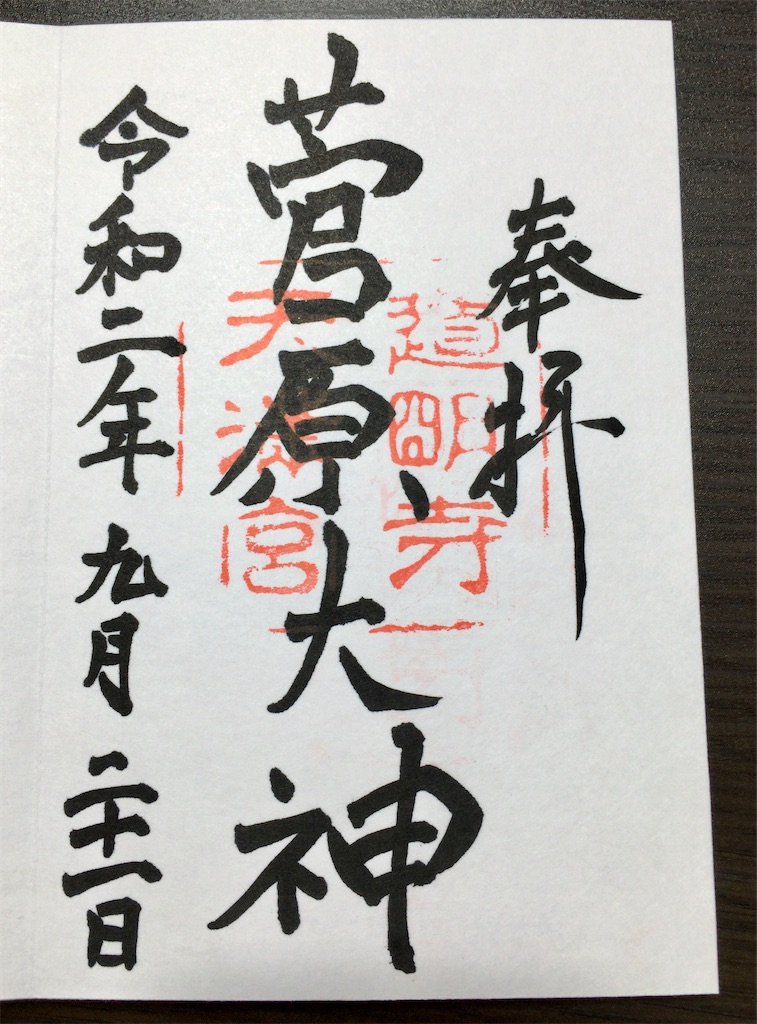 奉拝
道明寺
天満宮
菅原大神
令和二年九月二十一日